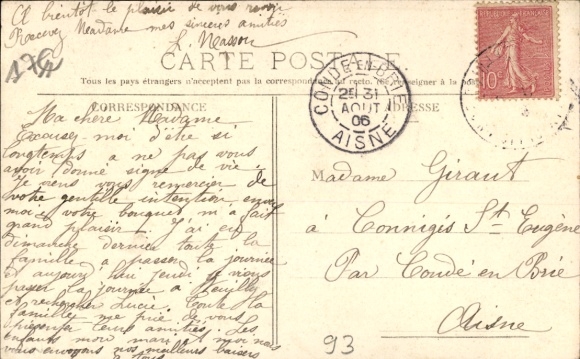 A bientôt le plaisir de vous revoir
Recevez Madame mes sincères amitiés
L. Masson
CARTE POSTALE
Tous les pays étrangers n'acceptent pas la correspondance au recto. (Se renseigner à la poste)
CORRESPONDANCE
ADRESSE
RÉPUBLIQUE FRANÇAISE
10
CONDÉ-EN-BRIE
25 31
AOUT
06
AISNE
Ma chère Madame
Excusez-moi d'être si
longtemps a ne pas vous
avoir donné signe de vie.
Je viens vous remercier de
votre gentille intention envers
moi votre bouquet m'a fait
grand plaisir. J'ai eu
dimanche dernier toute la
famille a passer la journée
et aujourd'hui jeudi je vais
passer la journée à Neuilly
et rechercher Lucie. Toute la
famille me prie de vous
présenter leurs amitiés. Les
enfants mon mari et moi nous
vous envoyons nos meilleurs baisers
Madame Giraut
à Connigés St Eugène
Par Condé en Brie
Aisne
93